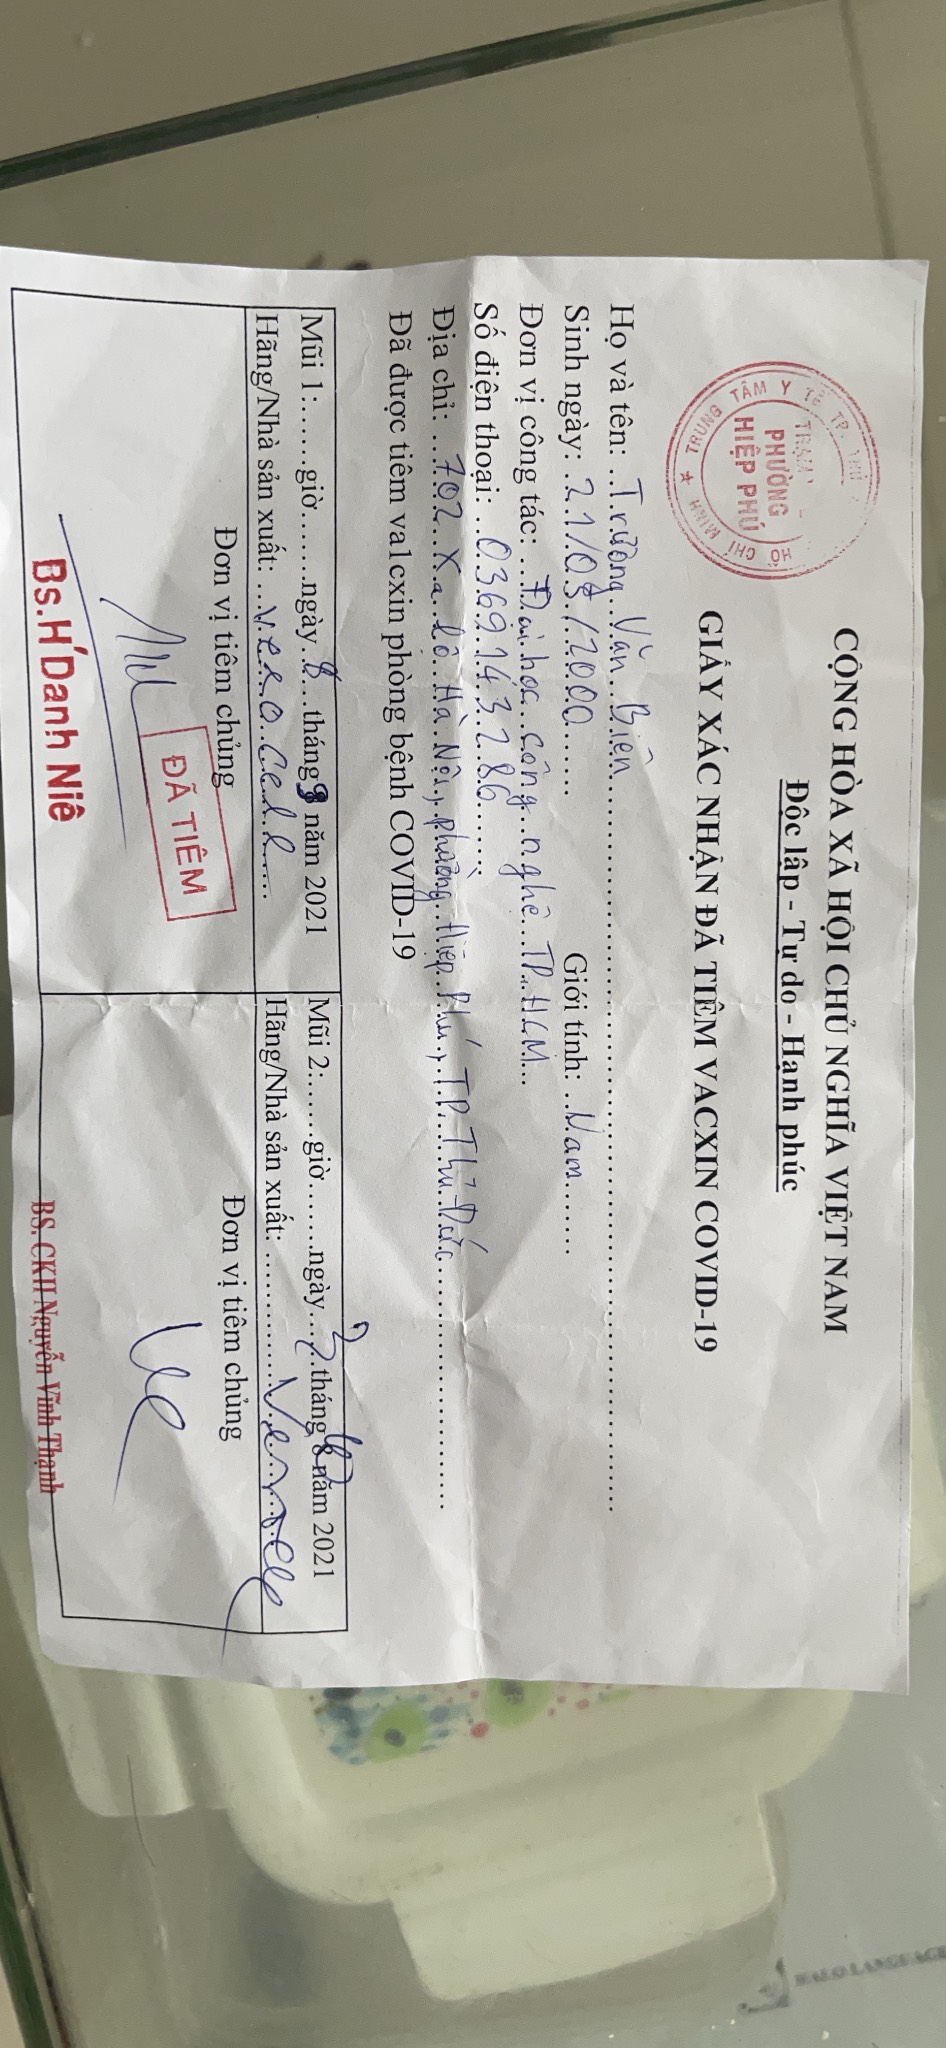 TRUNG TÂM Y TẾ TP. THỦ HỒ CHÍ MINH
TRẠM
PHƯỜNG
HIỆP PHÚ
CỘNG HÒA XÃ HỘI CHỦ NGHĨA VIỆT NAM
Độc lập - Tự do - Hạnh phúc
GIẤY XÁC NHẬN ĐÃ TIÊM VACXIN COVID-19
Họ và tên: Trường Văn Biên
Sinh ngày: 21/05/2000 Giới tính: Nam
Đơn vị công tác: Đại học công nghệ TP.HCM
Số điện thoại: 0369143286
Địa chỉ: 702 Xa lộ Hà Nội, phường Hiệp Phú, TP. Thủ Đức
Đã được tiêm va1cxin phòng bệnh COVID-19
Mũi 1:......giờ.......ngày..8...tháng 9 năm 2021
Hãng/Nhà sản xuất: vero cell
Đơn vị tiêm chủng
ĐÃ TIÊM
Bs.H'Danh Niê
Mũi 2:......giờ.......ngày......tháng 10 năm 2021
Hãng/Nhà sản xuất:
Đơn vị tiêm chủng
BS. CKII Nguyễn Vĩnh Thạnh